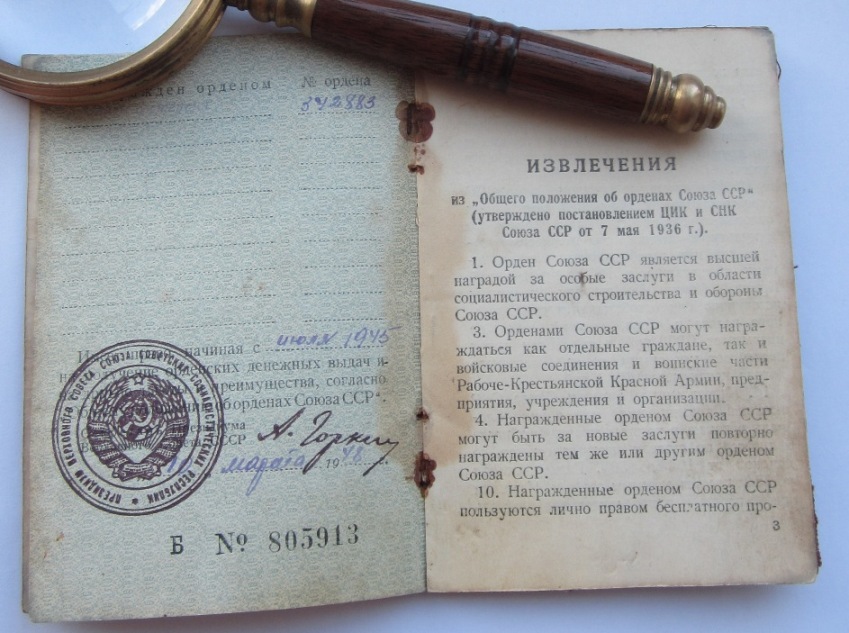 жден орденом
№ ордена
372883
начиная с июля 1945
учение орденских денежных выдач и
преимущества, согласно
об орденах Союза ССР".
А. Горкин
марта 1948 г.
ПРЕЗИДИУМ ВЕРХОВНОГО СОВЕТА СОЮЗА СОВЕТСКИХ СОЦИАЛИСТИЧЕСКИХ РЕСПУБЛИК
Б № 805913
ИЗВЛЕЧЕНИЯ
из „Общего положения об орденах Союза ССР"
(утверждено постановлением ЦИК и СНК
Союза ССР от 7 мая 1936 г.).
1. Орден Союза ССР является высшей
наградой за особые заслуги в области
социалистического строительства и обороны
Союза ССР.
3. Орденами Союза ССР могут награ-
ждаться как отдельные граждане, так и
войсковые соединения и воинские части
Рабоче-Крестьянской Красной Армии, пред-
приятия, учреждения и организации.
4. Награжденные орденом Союза ССР
могут быть за новые заслуги повторно
награждены тем же или другим орденом
Союза ССР.
10. Награжденные орденом Союза ССР
пользуются лично правом бесплатного про-
3